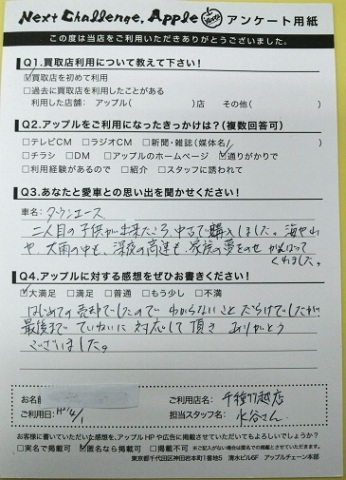 Next Challenge, Apple アンケート用紙
この度は当店をご利用いただきありがとうございました。
Q1.買取店利用について教えて下さい!
☑買取を初めて利用
□過去に買取店を利用したことがある
利用した店舗: アップル( )店 その他( )
Q2.アップルをご利用になったきっかけは?(複数回答可)
□テレビCM □ラジオCM □新聞・雑誌(媒体名 )
□チラシ □DM □アップルのホームページ ☑通りがかりで
□利用経験があるので □紹介 □スタッフに誘われて
Q3.あなたと愛車との思い出を聞かせください!
車名: タウンエース
二人目の子供が出来たころ、中古で購入しました。海や山
や、大雨の中も、深夜の高速も、家族の夢をのせ がんばって
くれました。
Q4.アップルに対する感想をぜひお書きください!
☑大満足 □満足 □普通 □もう少し □不満
はじめての売却でしたので わからないことだらけでしたが
最後まで ていねいに対応して頂き ありがとう
ございました。
お名前
ご利用店名: 千種竹越店
ご利用日: 4/1
担当スタッフ名: 水谷さん
お客様に書いていただいた感想を、アップルHPや広告に掲載させていただいてもよろしいでしょうか?
□実名で掲載可 ☑匿名なら掲載可 □掲載不可 ※ご記入がない場合は匿名での掲載とさせていただきます。
東京都千代田区神田岩本町1番地5 清水ビル6F アップルチェーン本部